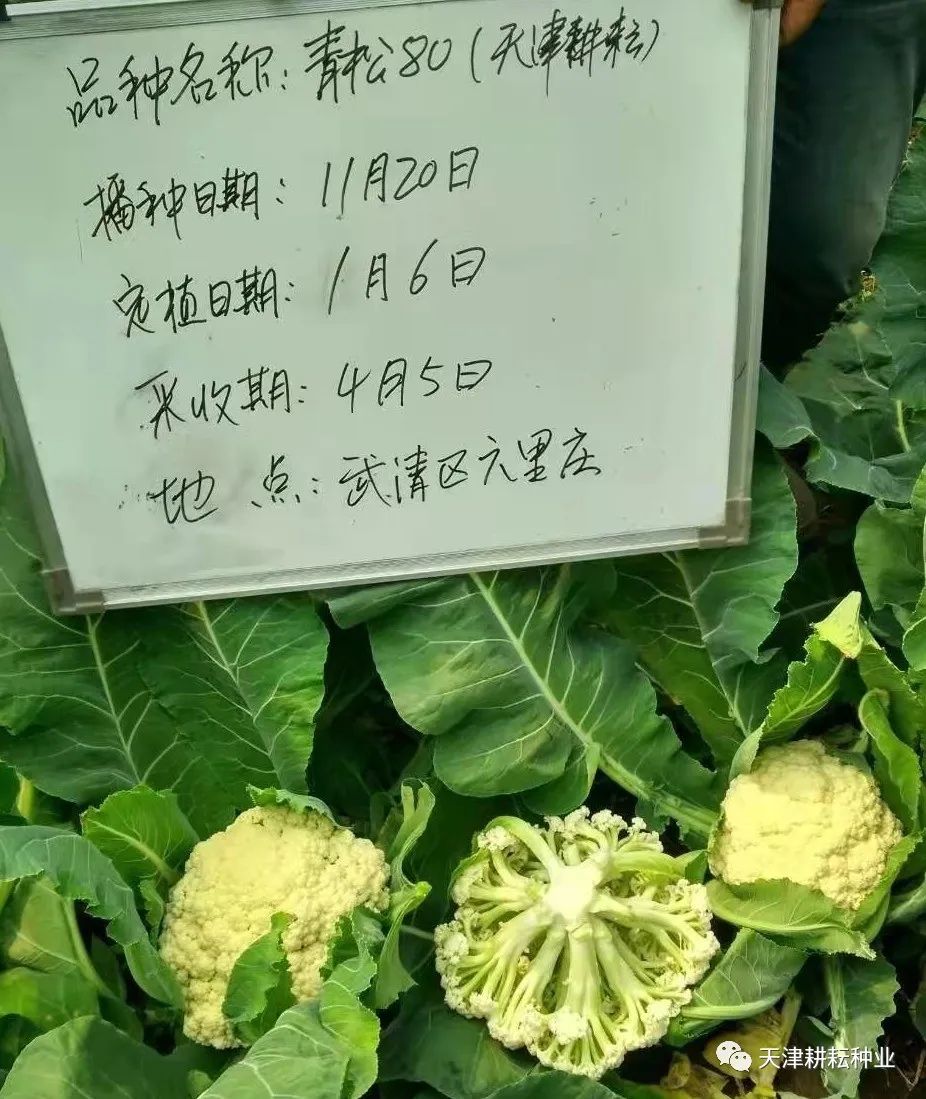 品种名称：青松80（天津耕耘）
播种日期：11月20日
定植日期：1月6日
采收期：4月5日
地 点：武清区六里庄
天津耕耘种业